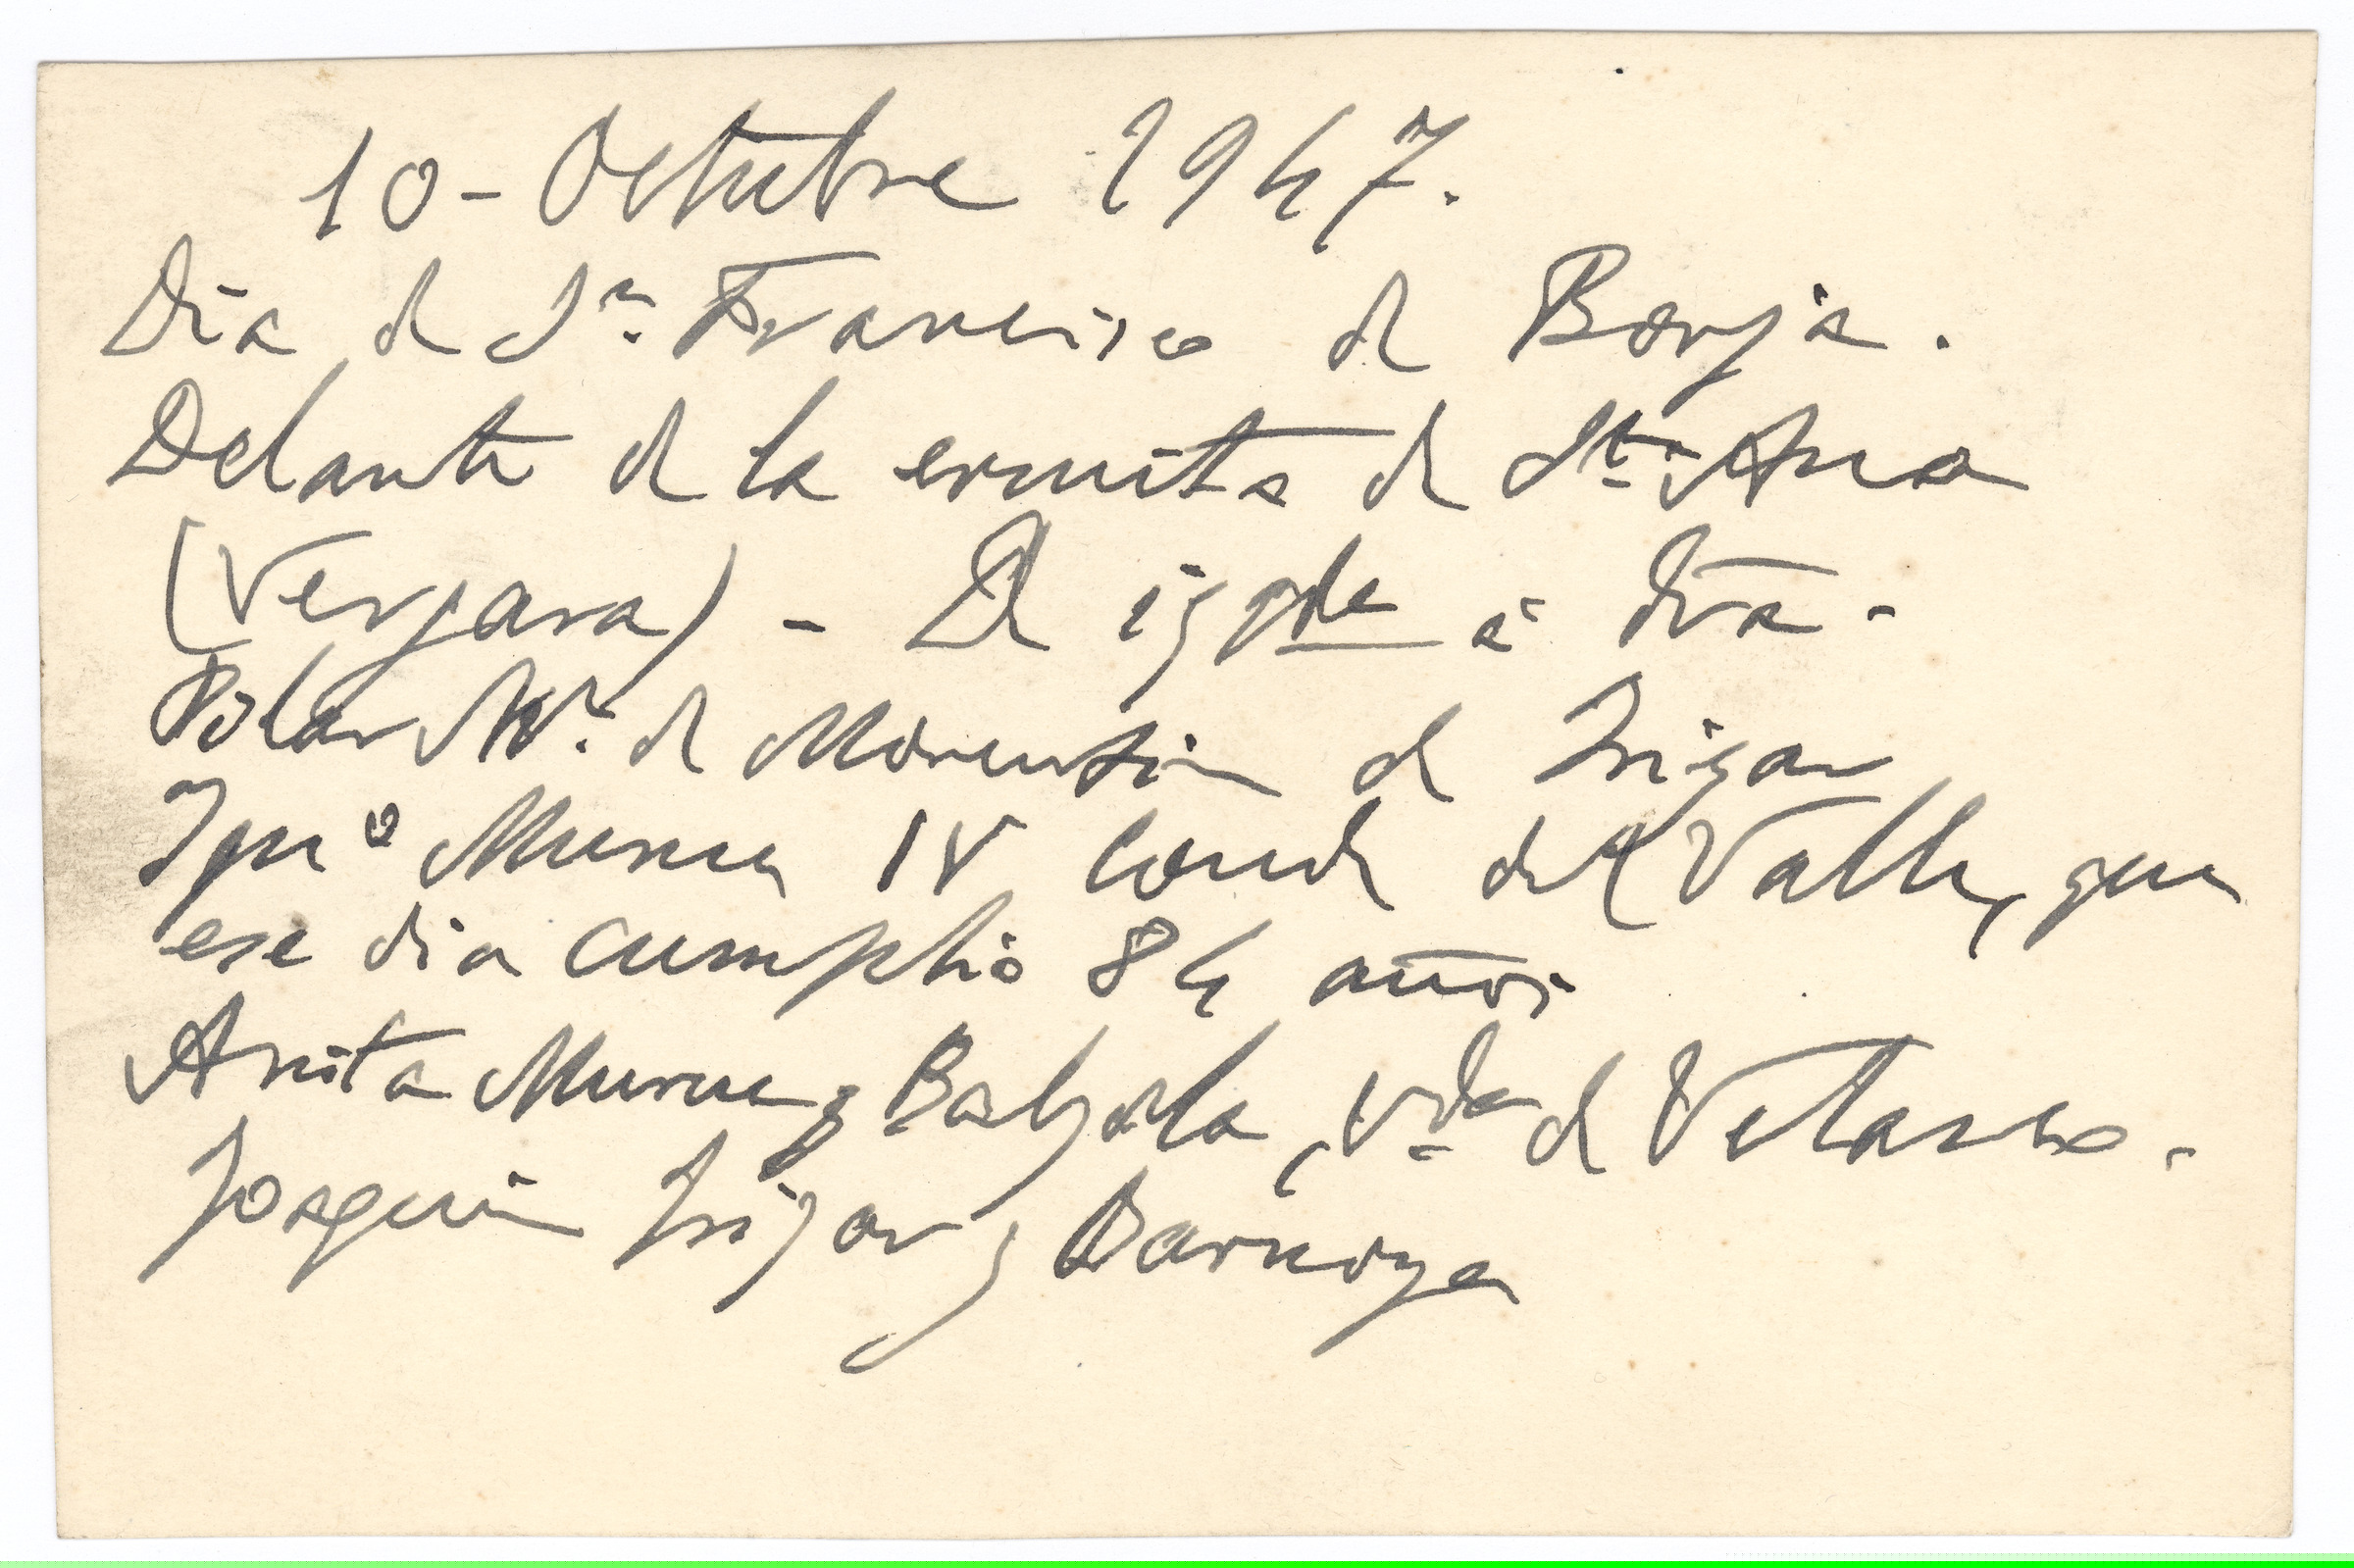 10-Octubre 1947.
Dia de Sn. Francisco de Borja.
Delante de la ermita de Sta. Ana
(Vergara) - De izqda a dra -
Pilar Mz. de Morentin de Irizar
Ignº Murua IV Conde del Valle, que
ese dia cumplió 84 años
Anita Murua y Balzola, Vda de Velasco.
Joaquin Irizar y Barnoya